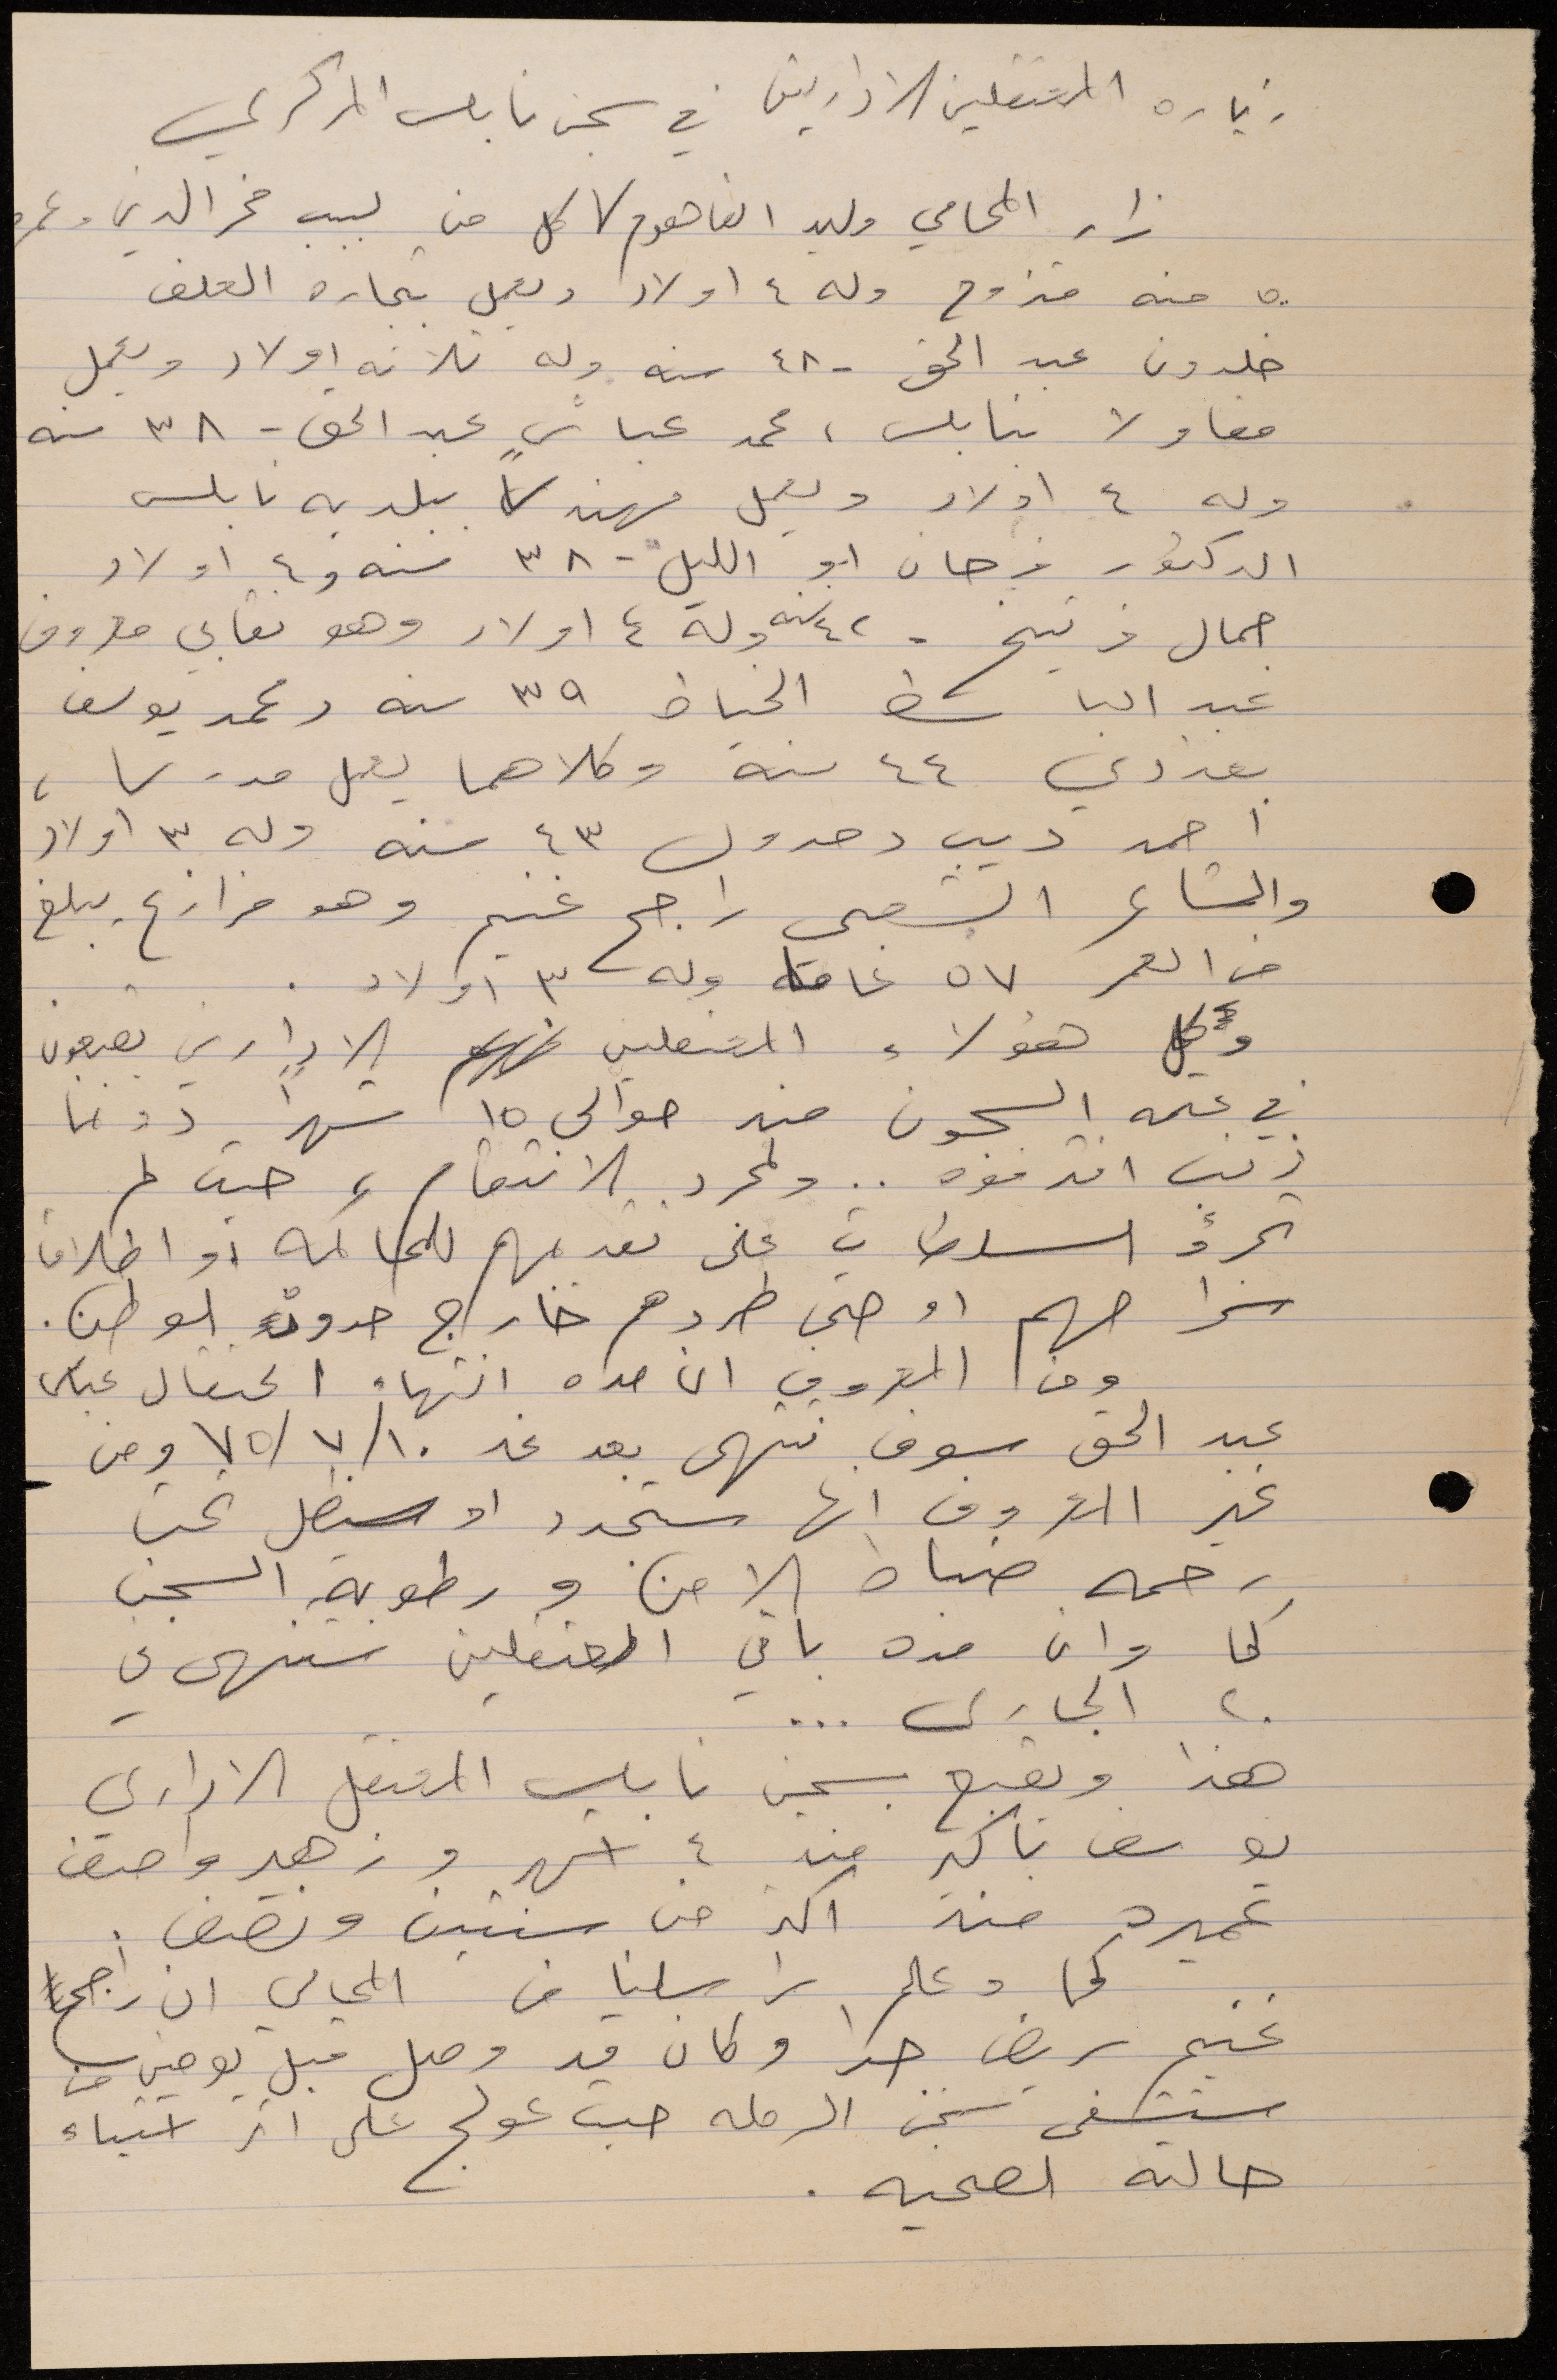 زياره المعتقلين الاداريين في سجن نابلس المركزي
زار المحامي وليد الفاهوم كل من لبيب فخر الدين وعمره
٥٠ سنه متزوج وله ٤ اولاد ويعمل بتجاره العلف
خلدون عبد الحق - ٤٨ سنه وله ثلاثه اولاد ويعمل
مقاولا بنابلس ، محمد عباس عبد الحق - ٣٨ سنه
وله ٤ اولاد ويعمل مهندسًا ببلديه نابلس
الدكتور فرحان ابو الليل - ٣٨ سنه و٤ اولاد
جمال فريتخ - ٤٢ سنه وله ٤ اولاد وهو نقابي معروف
عبد الباسط الخياط ٣٩ سنه ومحمد يوسف
بغدادي ٤٤ سنة وكلاهما يعمل مدرسا ،
احمد ديب دحدول ٤٣ سنه وله ٣ اولاد
والشاعر الشعبي راجح غنيم وهو مزارع يبلغ
من العمر ٥٧ عاما وله ٣ اولاد .
وكل هؤلاء المعتقلين الاداريين يقبعون
في عتمه السجون منذ حوالي ١٥ شهرا دونما
ذنب اقترفوه .. ولمجرد الانتقام ، حيث لم
تجرؤ السلطات على تقديمهم للمحاكمه او اطلاق
سراحهم او حتى طردهم خارج حدود الوطن .
ومن المعروف ان مده انتهاء اعتقال عباس
عبد الحق سوف تنتهي بعد غد ١٠/٧/٧٥ ومن
غير المعروف انها ستجدد او سيظل تحت
رحمه ضباط الامن ورطوبة السجن
كما وان مده باقي المعتقلين ستنتهي في
٢٠ الجاري ...
هذا ويقبع بسجن نابلس المعتقل الاداري
يوسف باكير منذ ٤ اشهر وزهير واصف
عميره منذ اكثر من سنتين ونصف .
كما وعلم مراسلنا من المحامي ان راجح
غنيم مريض جدا وكان قد وصل قبل يومين من
مستشفى سجن الرمله حيث عولج على اثر استياء
حالته الصحيه .